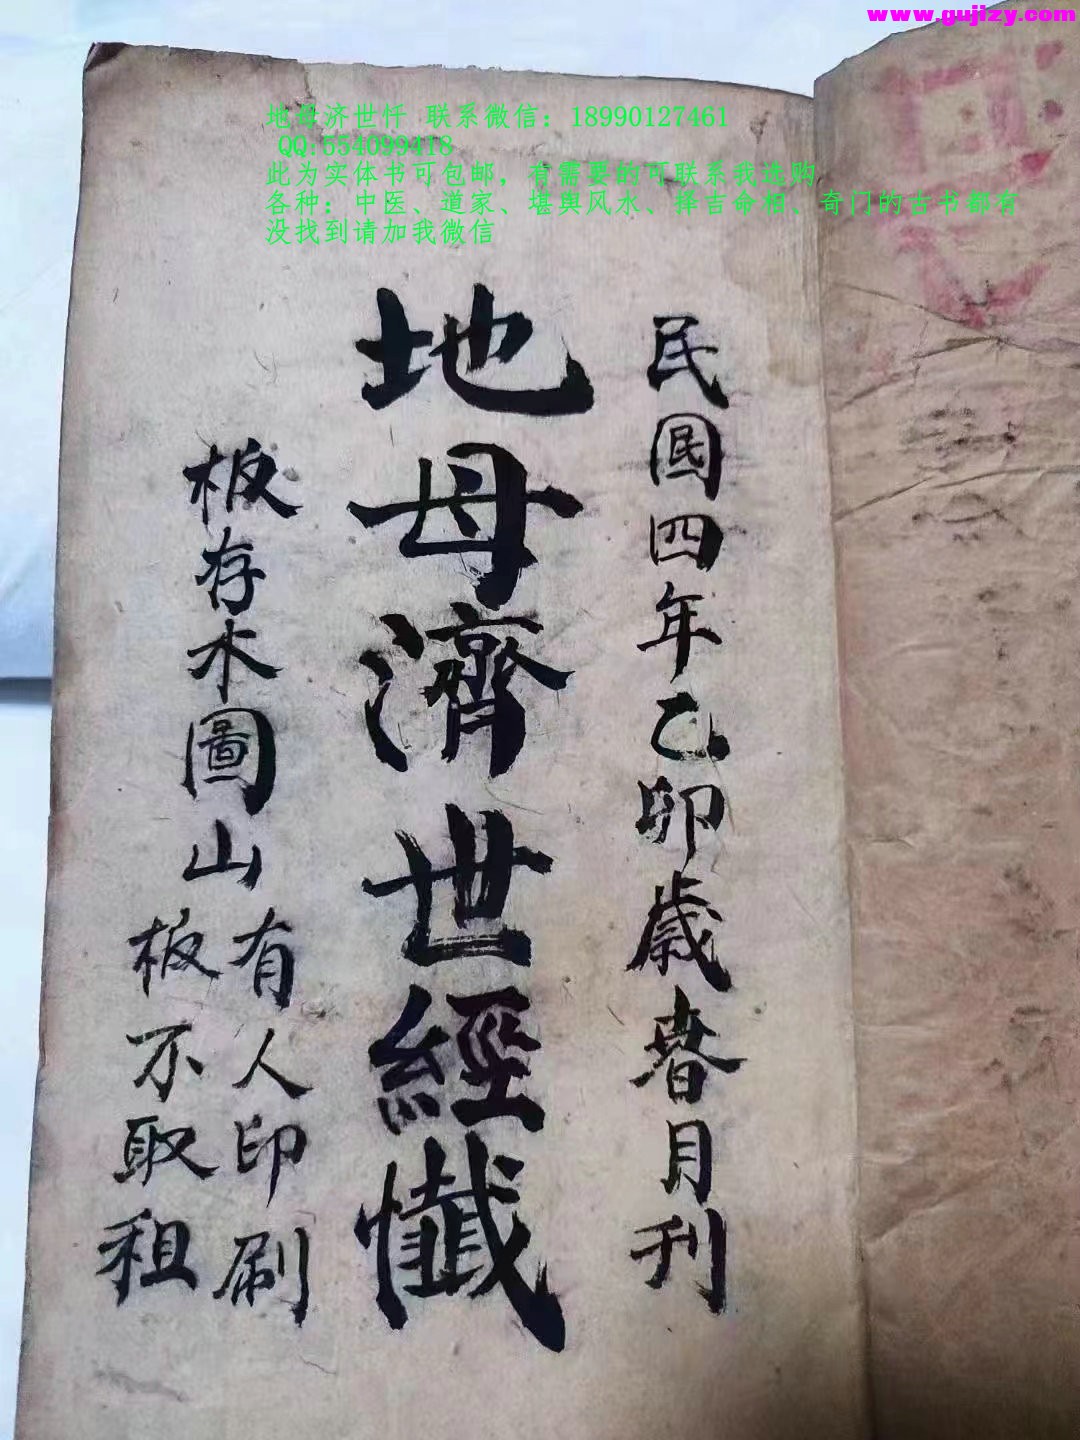 www.gujizy.com
地母济世忏 联系微信：18990127461
QQ:554099418
此为实体书可包邮，有需要的可联系我选购
各种：中医、道家、堪舆风水、择吉命相、奇门的古书都有
没找到请加我微信
民國四年乙卯歲春月刊
地母濟世經懺
板存木圖山
有人印刷
板不取租